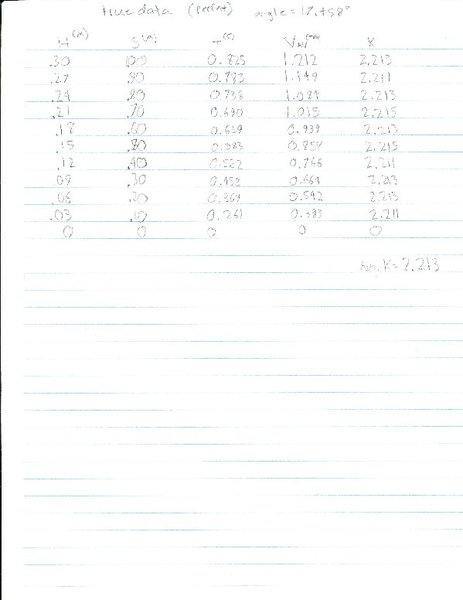 true data (perfect) angle = 17.458°
H (m) S (m) T (s) Vav (m/s) K
.30 1.00 0.825 1.212 2.213
.27 .90 0.783 1.149 2.211
.24 .80 0.738 1.084 2.213
.21 .70 0.690 1.015 2.215
.18 .60 0.639 0.939 2.213
.15 .50 0.583 0.857 2.215
.12 .40 0.522 0.766 2.211
.09 .30 0.452 0.664 2.213
.06 .20 0.369 0.542 2.213
.03 .10 0.261 0.383 2.211
0 0 0 0 0
K = 2.213